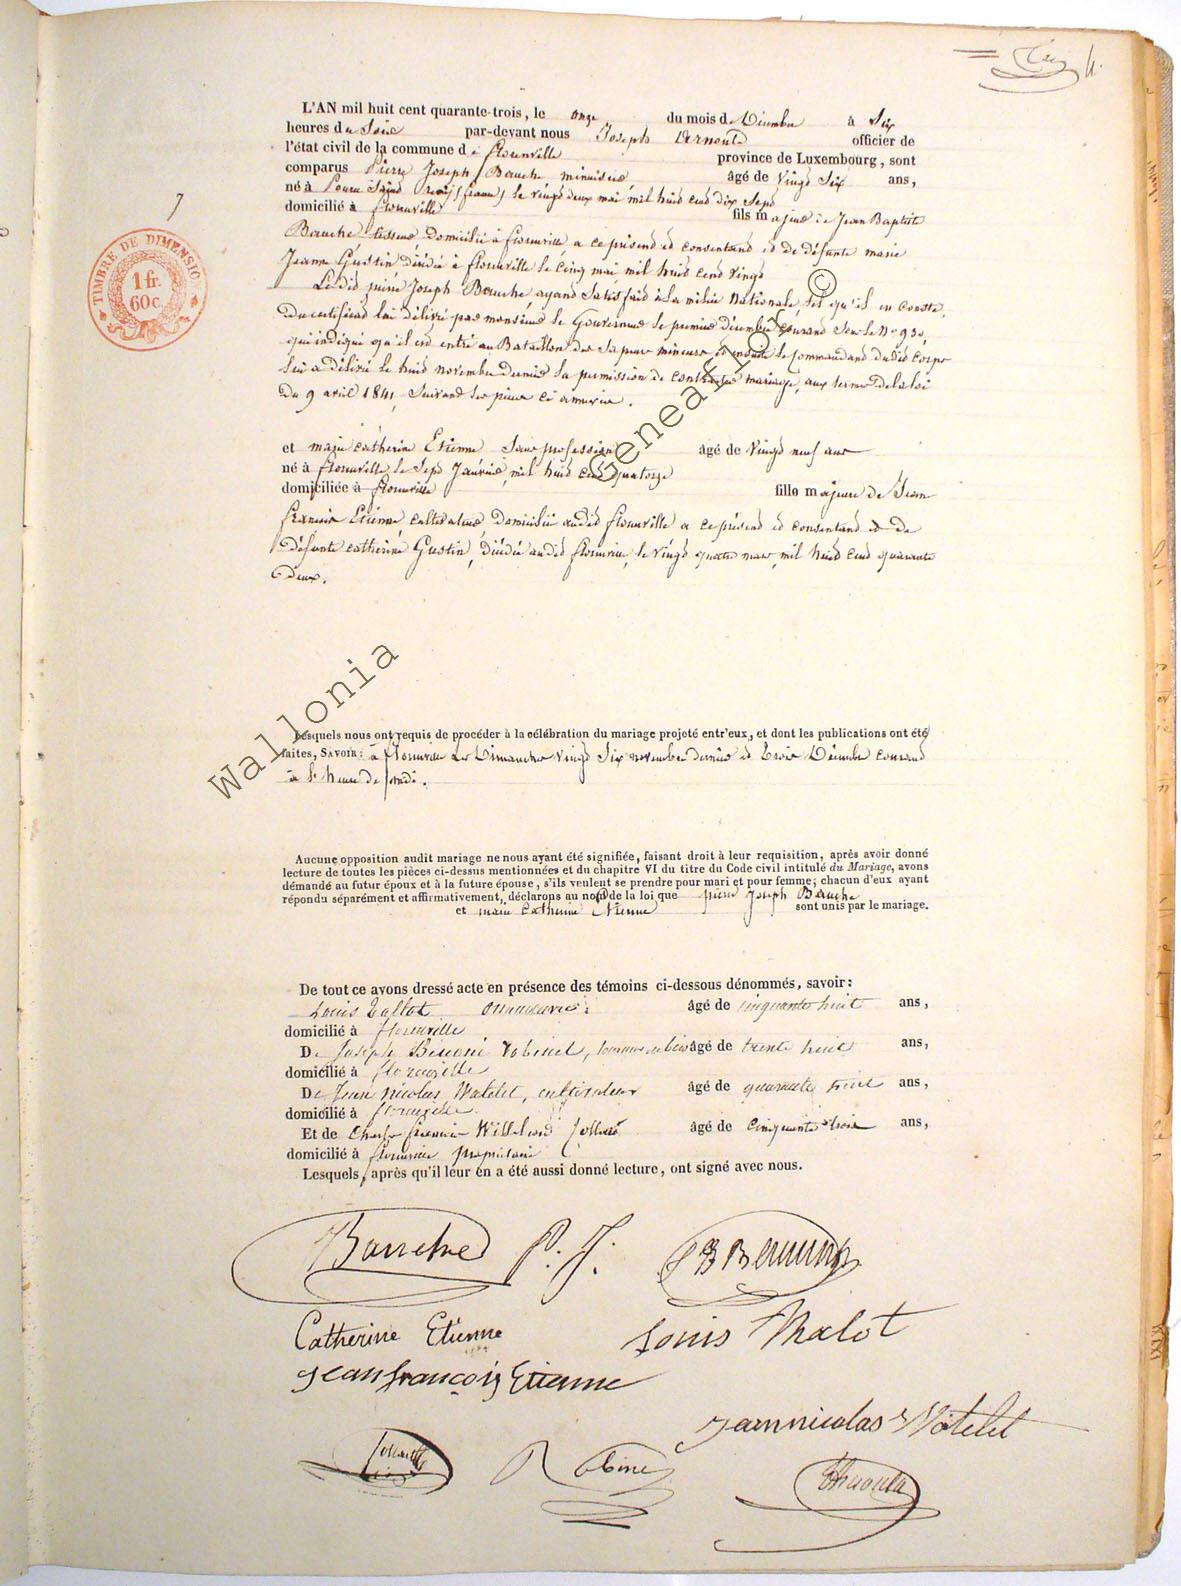 4.
7
TIMBRE DE DIMENSION
1 fr.
60c
L'AN mil huit cent quarante-trois, le onze du mois d décembre à six
heures du soir par-devant nous Joseph officier de
l'état civil de la commune de florenville province de Luxembourg, sont
comparus Pierre Joseph Bauche menuisier âgé de vingt six ans,
né à Pouru Saint remi (france) le vingt deux mai mil huit cent dix sept
domicilié à florenville fils majeur de Jean Baptiste
Bauche tisseur domicilié à florenville a ce présent et consentant et de défunte marie
Jeanne Gustin décédée à florenville le cinq mai mil huit cent vingt
Le dit pierre Joseph Bauche ayant satisfait à la milice nationale, tel qu'il en conste
du certificat lui délivré par monsieur le Gouverneur le premier décembre courant sous le N° 930,
qui indique qu'il est entré au Bataillon des sapeurs mineurs et ensuite le commandant dudit corps
lui a délivré le huit novembre dernier la permission de contracter mariage, aux termes de la loi
du 9 avril 1841, suivant les pièces ci annexées.
et marie catherine Etienne sans profession âgé de vingt neuf ans
né à florenville le sept Janvier mil huit cent quatorze
domiciliée à florenville fille majeure de Jean
françois Etienne cultivateur domicilié audit florenville a ce présent et consentant et de
défunte catherine Gustin, décédée audit florenville, le vingt quatre mars, mil huit cent quarante
deux.
Lesquels nous ont requis de procéder à la célébration du mariage projeté entr'eux, et dont les publications ont été
faites, SAVOIR: à florenville les Dimanches vingt six novembre dernier et trois Décembre courant
à l'heure de midi.
Aucune opposition audit mariage ne nous ayant été signifiée, faisant droit à leur requisition, après avoir donné
lecture de toutes les pièces ci-dessus mentionnées et du chapitre VI du titre du Code civil intitulé du Mariage, avons
démandé au futur époux et à la future épouse, s'ils veulent se prendre pour mari et pour femme; chacun d'eux ayant
répondu séparément et affirmativement, déclarons au nom de la loi que pierre Joseph Bauche
et marie catherine Etienne sont unis par le mariage.
De tout ce avons dressé acte en présence des témoins ci-dessous dénommés, savoir:
Louis manoeuvre âgé de cinquante huit ans,
domicilié à florenville
De Joseph Robinet, âgé de trente huit ans,
domicilié à florenville
De Jean Nicolas Watelet, cultivateur âgé de quarante huit ans,
domicilié à florenville
Et de Charles françois Willebrord âgé de cinquante trois ans,
domicilié à florenville propriétaire
Lesquels, après qu'il leur en a été aussi donné lecture, ont signé avec nous.
Bauche P. J.
Catherine Etienne Louis
Jean françois Etienne
Jean nicolas Watelet
Robinet
Wallonia Geneaflor ©